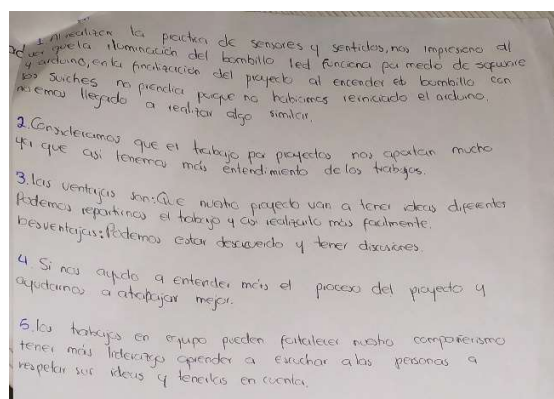 1. Al realizar la practica de sensores y sentidos, nos impresiono al
que la iluminación del bombillo led funciona por medio de sofware
y arduino, en la finalización del proyecto al encender el bombillo con
los suiches no prendia porque no habiamos reiniciado el arduino,
no emos llegado a realizar algo similar.
2. Consideramos que el trabajo por proyectos nos aportan mucho
ya que asi tenemos más entendimiento de los trabajos.
3. las ventajas son: Que nuestro proyecto van a tener ideas diferentes
Podemos repartirnos el trabajo y asi realizarlo más facilmente.
Desventajas: Podemos estar desacuerdo y tener discusiones.
4. Si nos ayudo a entender más el proceso del proyecto y
ayudarnos a atrabajar mejor.
5. los trabajos en equipo pueden fortalecer nuestro compañerismo
tener más liderazgo aprender a escuchar a las personas a
respetar sus ideas y tenerlas en cuenta.